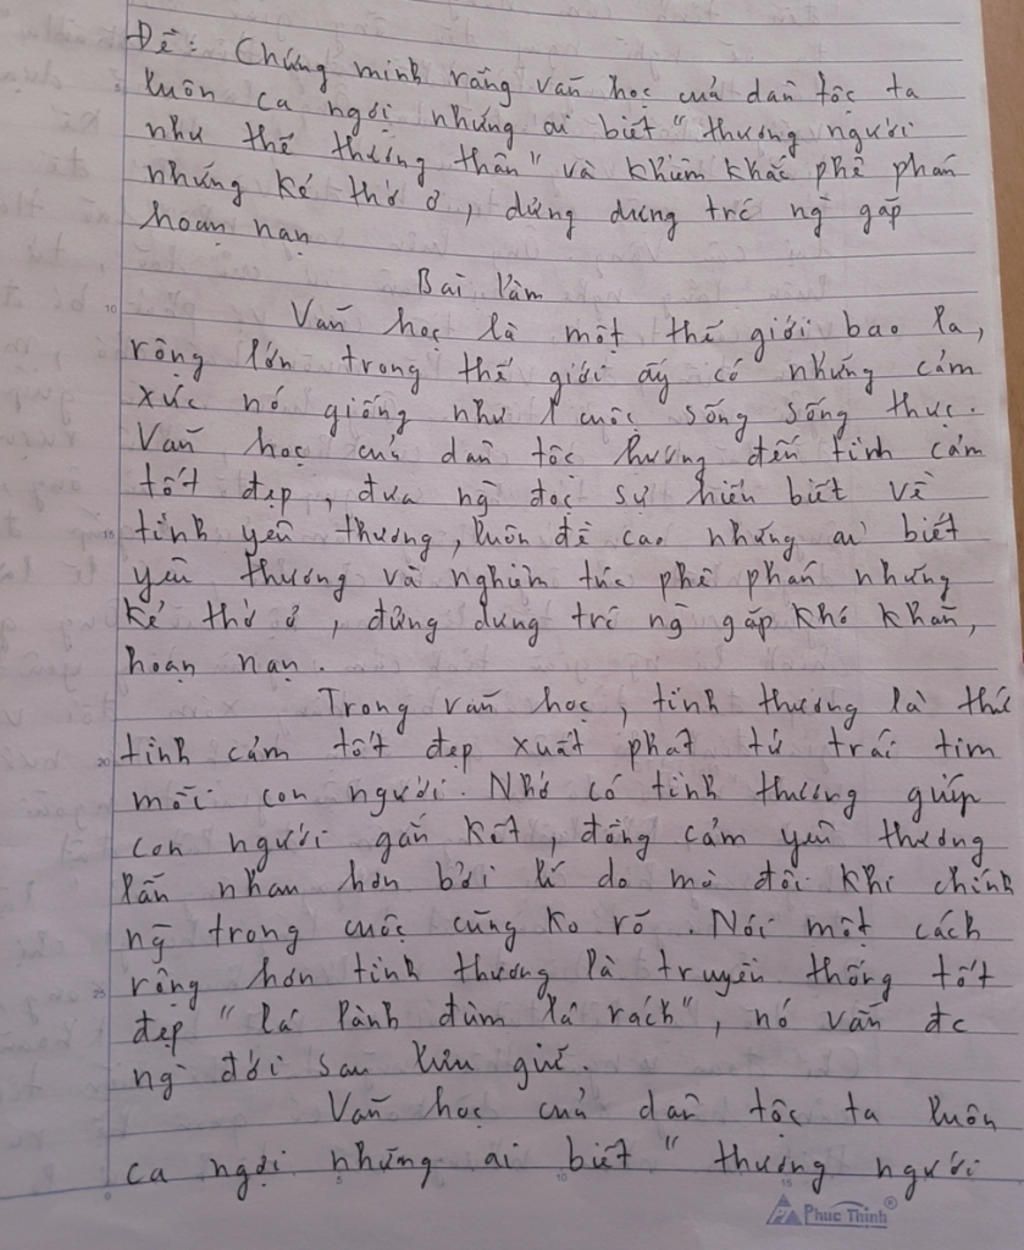 Đề: Chứng minh rằng văn học của dân tộc ta
luôn ca ngợi những ai biết "thương người
như thể thương thân" và khiêm khắc phê phán
những kẻ thờ ơ, dửng dưng trc ng gặp
hoạn nạn
Bài làm
Văn học là một thế giới bao la,
rộng lớn trong thế giới ấy có những cảm
xúc nó giống như 1 cuộc sống sống thực.
Văn học của dân tộc hướng đến tình cảm
tốt đẹp, đưa ng đọc sự hiểu biết về
tình yêu thương, luôn đề cao những ai biết
yêu thương và nghiêm túc phê phán những
kẻ thờ ơ, dửng dưng trc ng gặp khó khăn,
hoạn nạn.
Trong văn học, tình thương là thứ
tình cảm tốt đẹp xuất phát từ trái tim
mỗi con người. Nhờ có tình thương giúp
con người gắn kết, đồng cảm yêu thương
lẫn nhau hơn bởi lí do mà đôi khi chính
ng trong cuộc cũng ko rõ. Nói một cách
rộng hơn tình thương là truyền thống tốt
đẹp "lá lành đùm lá rách", nó vẫn đc
ng đời sau lưu giữ.
Văn học của dân tộc ta luôn
ca ngợi những ai biết "thương người
Phuc Thinh®